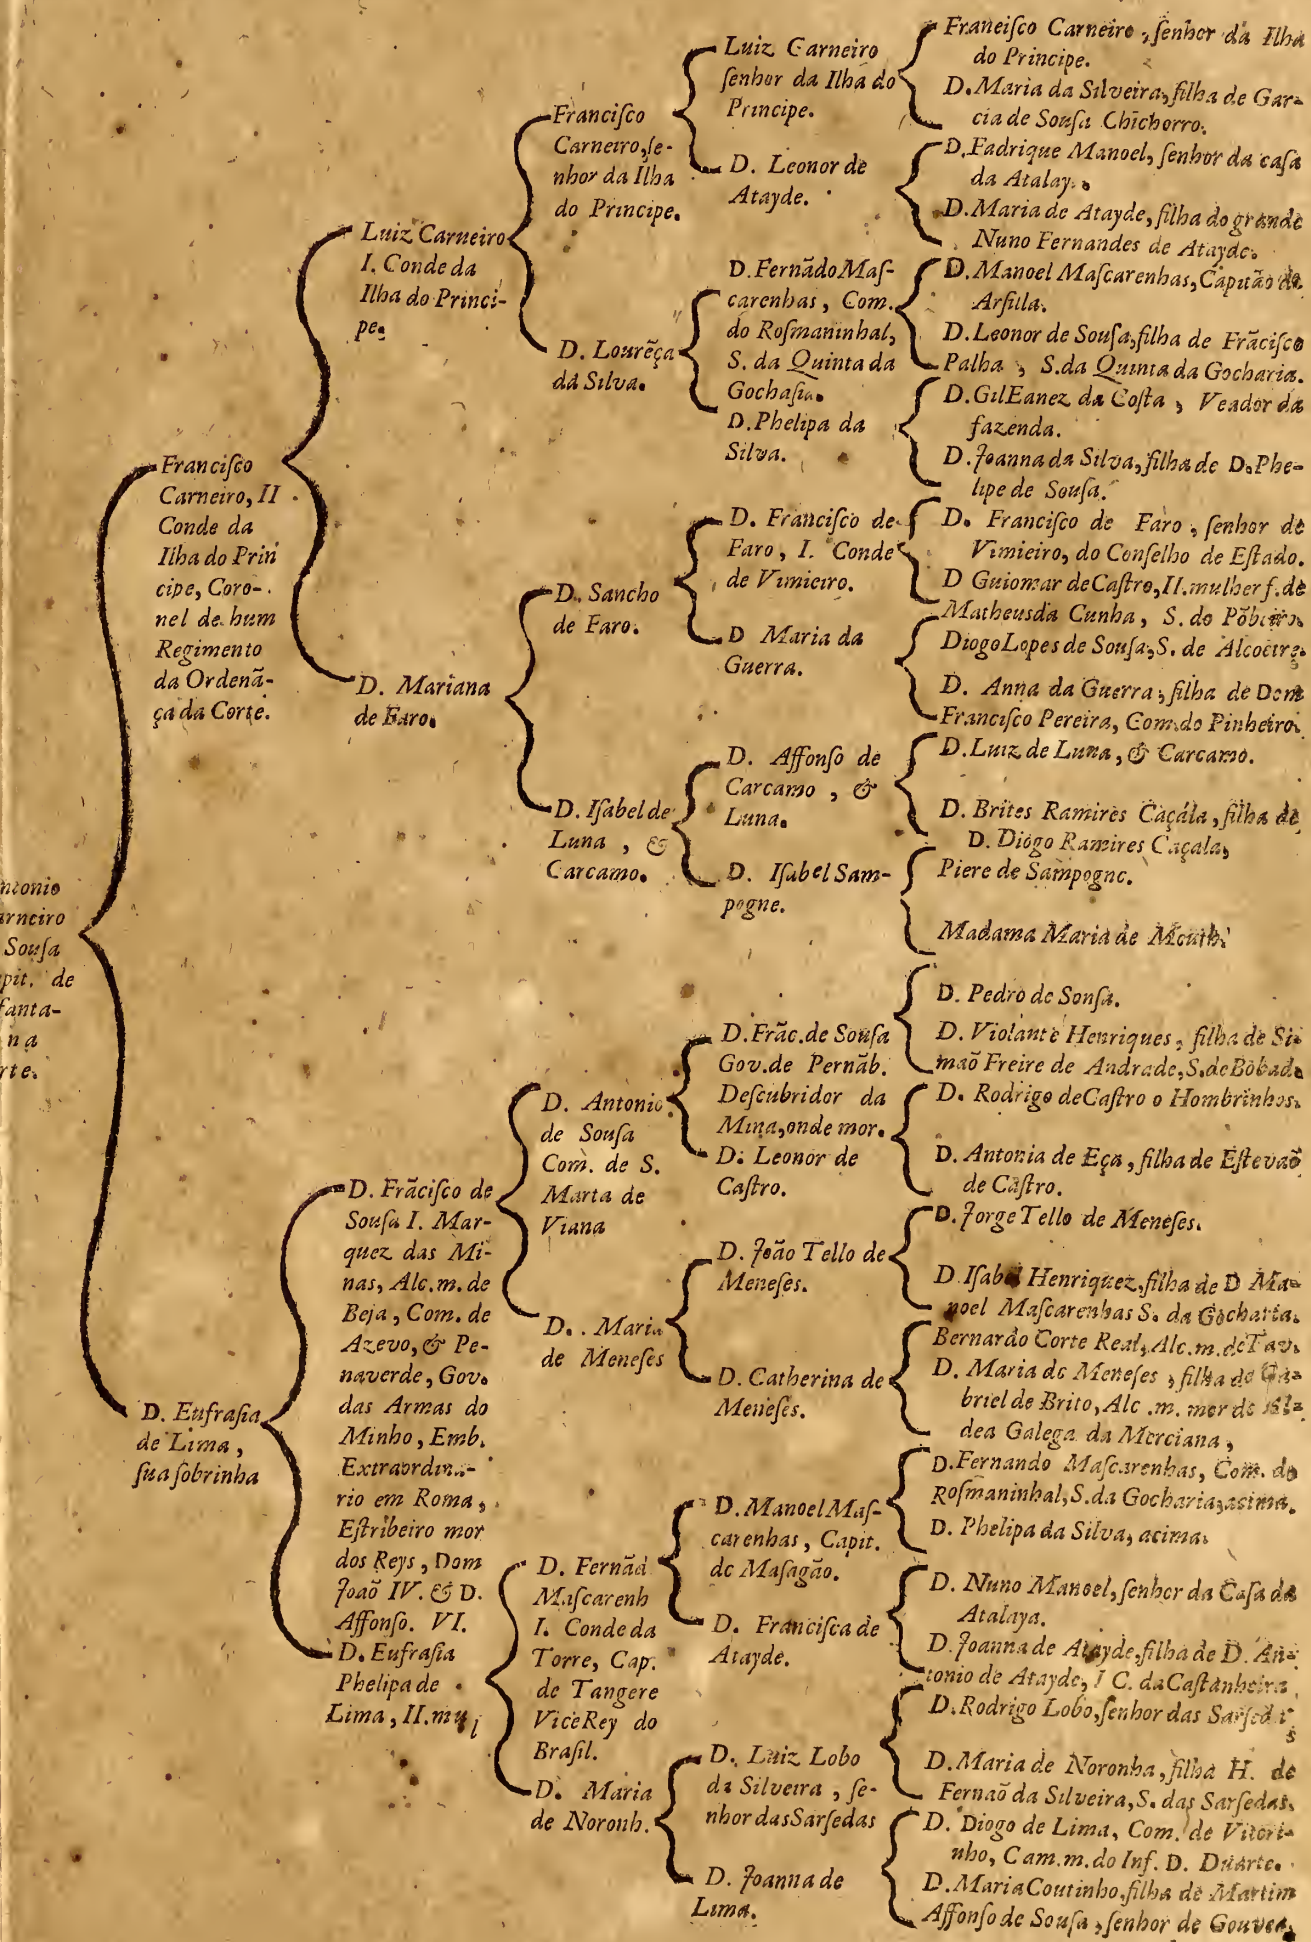 ntonio
arneiro
Sousa
pit. de
fanta-
na
rte.
Francisco
Carneiro, II
Conde da
Ilha do Prin
cipe, Coro-
nel de hum
Regimento
da Ordenã-
ça da Corte.
D. Eufrasia
de Lima,
sua sobrinha
Luiz Carneiro
I. Conde da
Ilha do Princi-
pe.
D. Mariana
de Faro.
D. Frãcisco de
Sousa I. Mar-
quez das Mi-
nas, Alc. m. de
Beja, Com. de
Azevo, & Pe-
naverde, Gov.
das Armas do
Minho, Emb.
Extraordina-
rio em Roma,
Estribeiro mor
dos Reys, Dom
Joaõ IV. & D.
Affonso. VI.
D. Eufrasia
Phelipa de
Lima, II. mu
Francisco
Carneiro, se-
nhor da Ilha
do Principe.
D. Lourẽça
da Silva.
D. Sancho
de Faro.
D. Isabel de
Luna, &
Carcamo.
D. Antonio
de Sousa
Com. de S.
Marta de
Viana
D. Maria
de Meneses
D. Fernãd
Mascarenh
I. Conde da
Torre, Cap.
de Tangere
ViceRey do
Brasil.
D. Maria
de Noronh.
Luiz Carneiro
senhor da Ilha do
Principe.
D. Leonor de
Atayde.
D. Fernãdo Mas-
carenhas, Com.
do Rosmaninhal,
S. da Quinta da
Gochasia.
D. Phelipa da
Silva.
D. Francisco de
Faro, I. Conde
de Vimieiro.
D Maria da
Guerra.
D. Affonso de
Carcamo, &
Luna.
D. Isabel Sam-
pogne.
D. Frãc. de Sousa
Gov. de Pernãb.
Descubridor da
Mina, onde mor.
D. Leonor de
Castro.
D. João Tello de
Meneses.
D. Catherina de
Meneses.
D. Manoel Mas-
carenhas, Capit.
de Masagão.
D. Francisca de
Atayde.
D. Luiz Lobo
da Silveira, se-
nhor das Sarsedas
D. Joanna de
Lima.
Francisco Carneiro, senhor da Ilha
do Principe.
D. Maria da Silveira, filha de Gar-
cia de Sousa Chichorro.
D. Fadrique Manoel, senhor da casa
da Atalay.
D. Maria de Atayde, filha do grande
Nuno Fernandes de Atayde.
D. Manoel Mascarenhas, Capitão de
Arsilla.
D. Leonor de Sousa, filha de Frãcisco
Palha, S. da Quinta da Gocharia.
D. Gil Eanez da Costa, Veador da
fazenda.
D. Joanna da Silva, filha de D. Phe-
lipe de Sousa.
D. Francisco de Faro, senhor de
Vimieiro, do Conselho de Estado.
D Guiomar de Castro, II. mulher f. de
Matheus da Cunha, S. do
Diogo Lopes de Sousa, S. de
D. Anna da Guerra, filha de Dom
Francisco Pereira, Com. do Pinheiro.
D. Luiz de Luna, & Carcamo.
D. Brites Ramires Caçála, filha de
D. Diogo Ramires Caçala,
Piere de Sampogne.
Madama Maria de
D. Pedro de Sousa.
D. Violante Henriques, filha de Si-
maõ Freire de Andrade, S. de Bobade
D. Rodrigo de Castro o Hombrinhos.
D. Antonia de Eça, filha de Estevaõ
de Castro.
D. Jorge Tello de Meneses.
D. Isabel Henriquez, filha de D Ma-
noel Mascarenhas S. da Gocharia.
Bernardo Corte Real, Alc. m. de Tav.
D. Maria de Meneses, filha de Ga-
briel de Brito, Alc. m. mor de Al-
dea Galega da Merciana,
D. Fernando Mascarenhas, Com. do
Rosmaninhal, S. da Gocharia, acima.
D. Phelipa da Silva, acima.
D. Nuno Manoel, senhor da Casa da
Atalaya.
D. Joanna de Atayde, filha de D. An-
tonio de Atayde, I C. da Castanheira
D. Rodrigo Lobo, senhor das
D. Maria de Noronha, filha H. de
Fernaõ da Silveira, S. das Sarsedas.
D. Diogo de Lima, Com. de Vitori-
nho, Cam. m. do Inf. D. Duarte.
D. Maria Coutinho, filha de Martim
Affonso de Sousa, senhor de Gouvea,